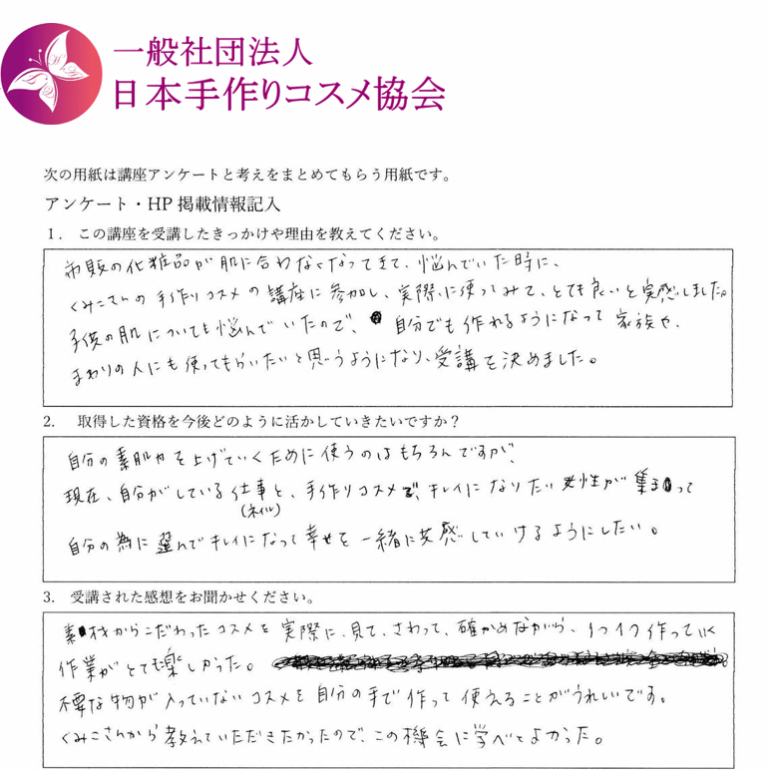 一般社団法人
日本手作りコスメ協会
次の用紙は講座アンケートと考えをまとめてもらう用紙です。
アンケート・HP 掲載情報記入
1. この講座を受講したきっかけや理由を教えてください。
市販の化粧品が肌に合わなくなってきて、悩んでいた時に、
くみこさんの手作りコスメの講座に参加し、実際に使ってみて、とても良いと実感しました。
子供の肌についても悩んでいたので、自分でも作れるようになって家族や、
まわりの人にも使ってもらいたいと思うようになり、受講を決めました。
2. 取得した資格を今後どのように活かしていきたいですか？
自分の素肌力を上げていくために使うのはもちろんですが、
現在、自分がしている仕事と、手作りコスメで、キレイになりたい女性が集まって
(ネイル)
自分の為に選んでキレイになって幸せを一緒に共感していけるようにしたい。
3. 受講された感想をお聞かせください。
素材からこだわったコスメを実際に、見て、さわって、確かめながら、1つ1つ作っていく
作業がとても楽しかった。
不要な物が入っていないコスメを自分の手で作って使えることがうれしいです。
くみこさんから教えていただきたかったので、この機会に学べてよかった。